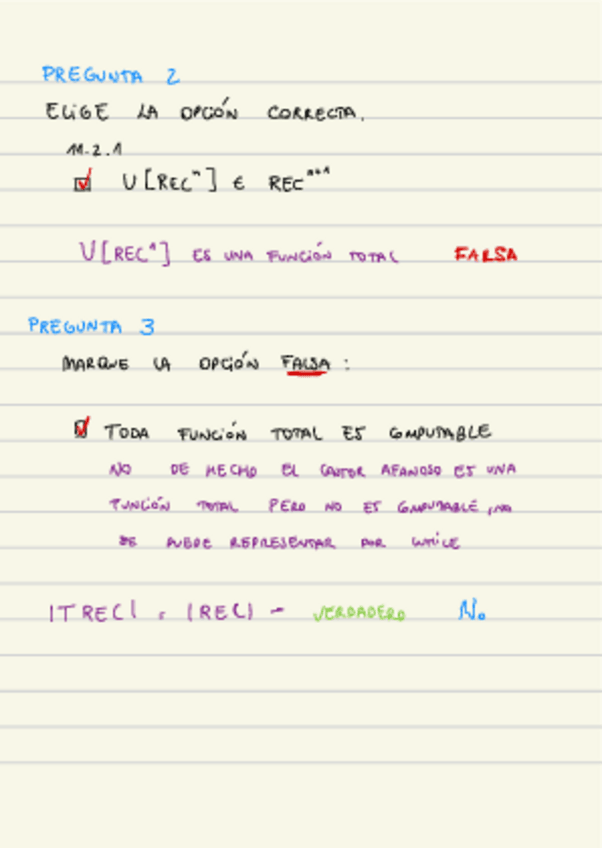 PREGUNTA 2
ELIGE LA OPCIÓN CORRECTA.
11.2.1
☑ U[RECⁿ] ∈ RECⁿ⁺¹
U[REC¹] ES UNA FUNCIÓN TOTAL FALSA
PREGUNTA 3
MARQUE LA OPCIÓN FALSA :
☑ TODA FUNCIÓN TOTAL ES COMPUTABLE
NO DE HECHO EL CASTOR AFANOSO ES UNA
FUNCIÓN TOTAL PERO NO ES COMPUTABLE, NO
SE PUEDE REPRESENTAR POR WHILE
|TREC| = |REC| - VERDADERO No